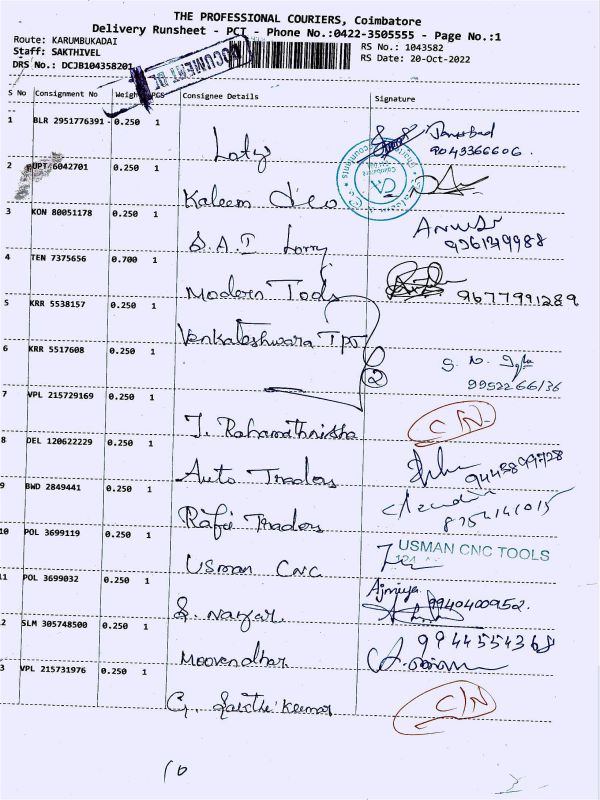 THE PROFESSIONAL COURIERS, Coimbatore
Delivery Runsheet - PCT - Phone No.:0422-3505555 - Page No.:1
Route: KARUMBUKADAI
RS No.: 1043582
Staff: SAKTHIVEL
RS Date: 20-Oct-2022
DRS No.: DCJB104358201
DOCUMENT
S No Consignment No Weight PCS Consignee Details Signature
1 BLR 2951776391 0.250 1
Laty
9043366606
2 UPT 6042701 0.250 1
Kaleem Deo
3 KON 80051178 0.250 1
S.A.I Lorry
4 TEN 7375656 0.700 1
Modern Tods 9677991289
5 KRR 5538157 0.250 1
Venkateshwara TPT
6 KRR 5517608 0.250 1
2
7 VPL 215729169 0.250 1
J. Rahamathnisha C/N
8 DEL 120622229 0.250 1
Auto Traders
9 BWD 2849441 0.250 1
Rafi Traders
10 POL 3699119 0.250 1
Usman CNC USMAN CNC TOOLS
11 POL 3699032 0.250 1
S. Nagar 9940400952
12 SLM 305748500 0.250 1
Moovendhar
13 VPL 215731976 0.250 1
G. Sakthi Kumar C/N
10